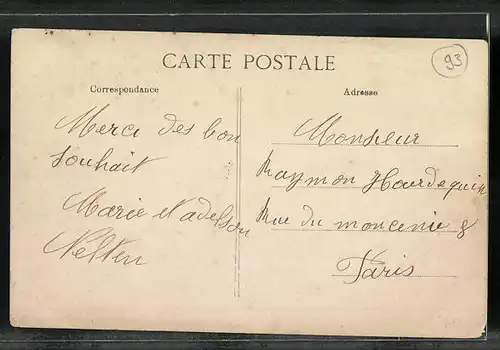 CARTE POSTALE
93
Correspondance
Adresse
Merci des bon
souhait
Marie et adelson
Nelten
Monsieur
Raymon Hourdequin
Rue du moncenie 8
Paris